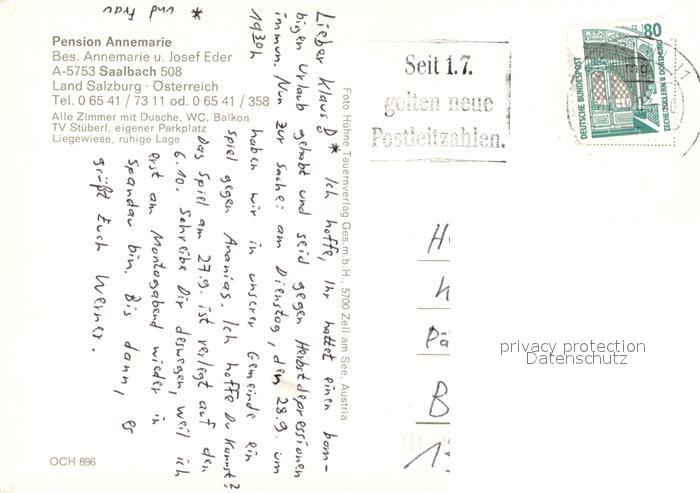 * und Frau
Pension Annemarie
Bes. Annemarie u. Josef Eder
A-5753 Saalbach 508
Land Salzburg · Österreich
Tel. 0 65 41 / 73 11 od. 0 65 41 / 358
Alle Zimmer mit Dusche, WC, Balkon
TV Stüberl, eigener Parkplatz
Liegewiese, ruhige Lage
Lieber Klaus D * Ich hoffe, Ihr hattet einen bom-
bigen Urlaub gehabt und seid gegen Herbstdepressionen
immun. Nun zur Sache: am Dienstag, den 28.9. um
19³⁰h haben wir in unserer Gemeinde ein
Spiel gegen Ananias. Ich hoffe Du kannst?
Das Spiel am 27.9. ist verlegt auf den
6.10. Schreibe Dir deswegen, weil ich
erst am Montagabend wieder in
Spandau bin. Bis dann, es
grüßt Euch Werner.
OCH 896
Foto Hühne Tauernverlag Ges.m.b.H., 5700 Zell am See, Austria
Seit 1.7.
gelten neue
Postleitzahlen.
80
DEUTSCHE BUNDESPOST
ZECHE ZOLLERN II DORTMUND
H
K
Pä
B
1
privacy protection
Datenschutz